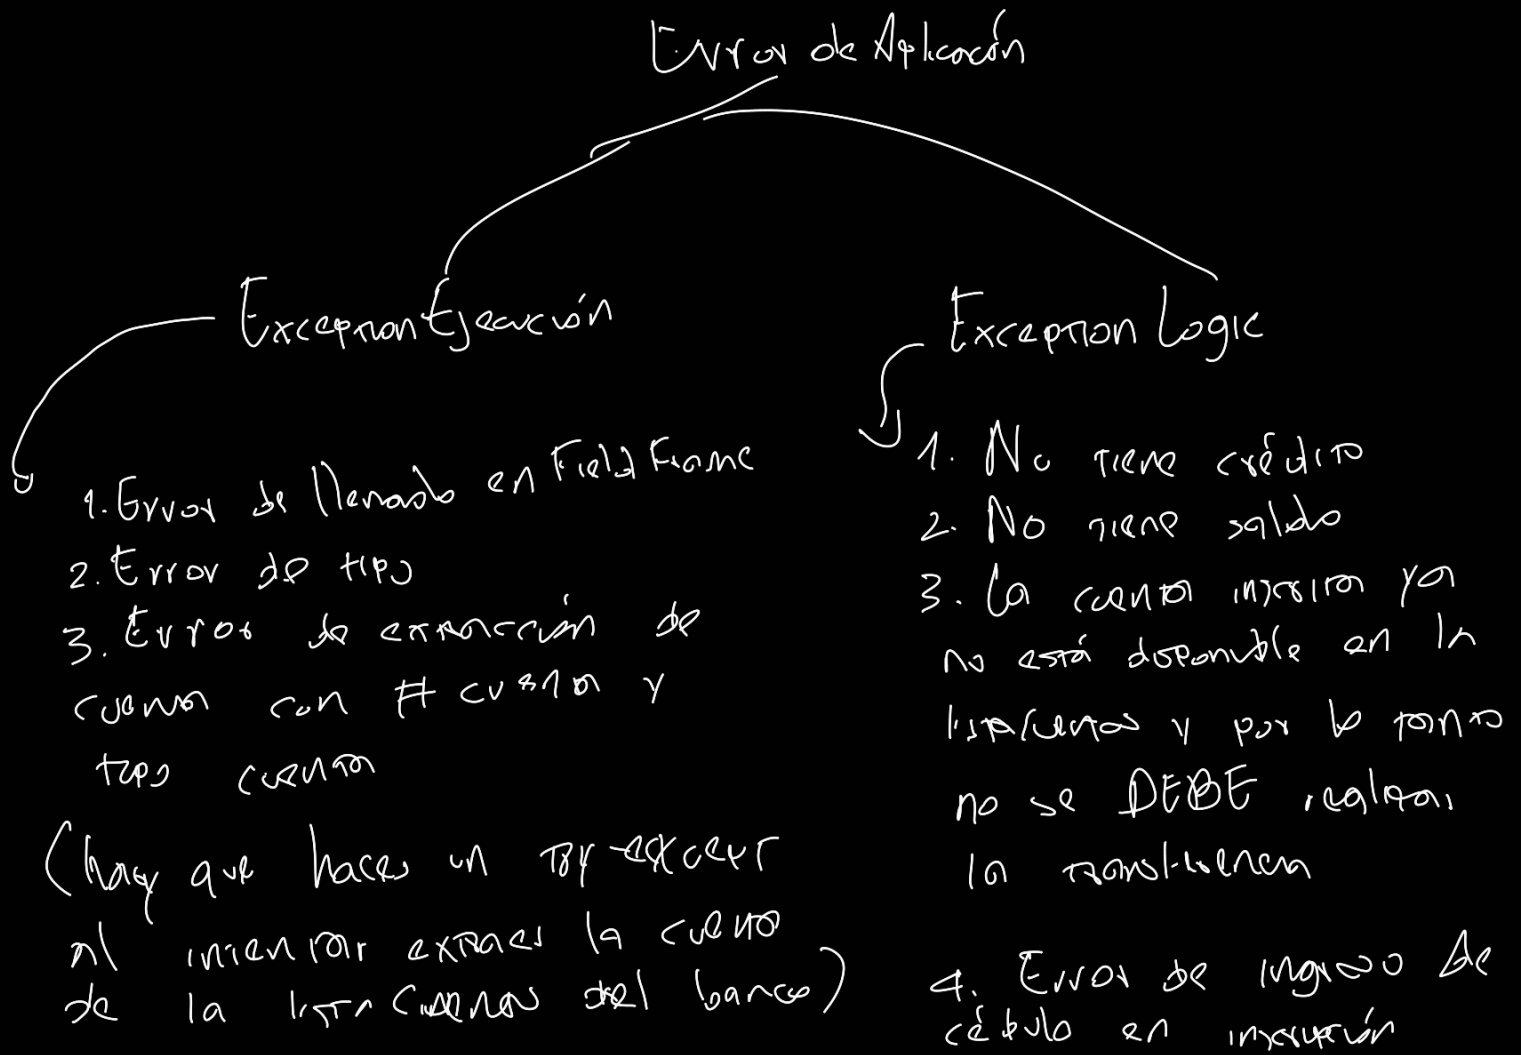 Error de Aplicación
Exception Ejecución
1. Error de llenado en Field Frame
2. Error de tipo
3. Error de extracción de
cuenta con # cuenta y
tipo cuenta
(hay que hacer un try-except
al intentar extraer la cuenta
de la listaCuentas del banco)
Exception Logic
1. No tiene crédito
2. No tiene saldo
3. La cuenta inscrita ya
no está disponible en la
listaCuentas y por lo tanto
no se DEBE realizar
la transferencia
4. Error de ingreso de
cédula en inscripción